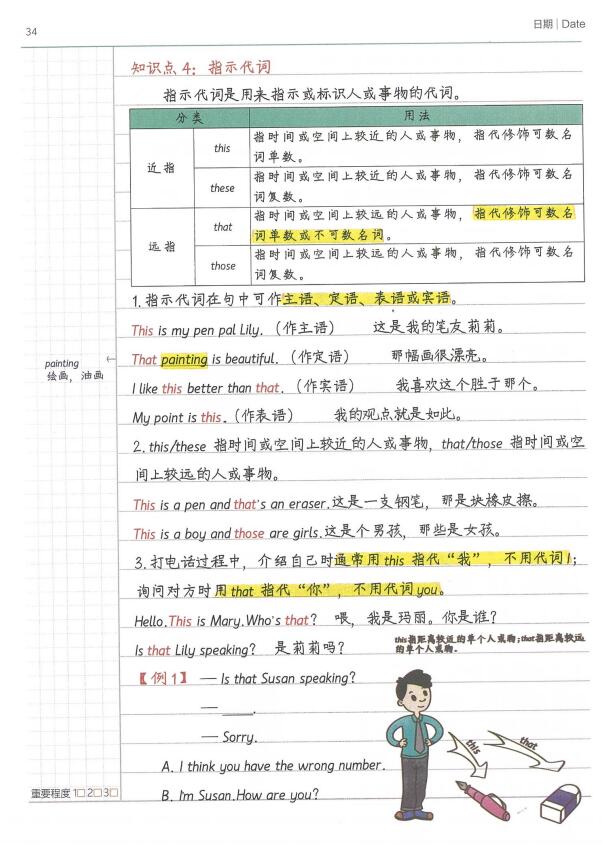 34
日期 | Date
知识点 4：指示代词
指示代词是用来指示或标识人或事物的代词。
分类 用法
近指 this 指时间或空间上较近的人或事物，指代修饰可数名
词单数。
these 指时间或空间上较近的人或事物，指代修饰可数名
词复数。
远指 that 指时间或空间上较远的人或事物，指代修饰可数名
词单数或不可数名词。
those 指时间或空间上较远的人或事物，指代修饰可数名
词复数。
1. 指示代词在句中可作主语、定语、表语或宾语。
This is my pen pal Lily.（作主语） 这是我的笔友莉莉。
That painting is beautiful.（作定语） 那幅画很漂亮。
painting
绘画，油画
I like this better than that.（作宾语） 我喜欢这个胜于那个。
My point is this.（作表语） 我的观点就是如此。
2. this/these 指时间或空间上较近的人或事物，that/those 指时间或空
间上较远的人或事物。
This is a pen and that's an eraser.这是一支钢笔，那是块橡皮擦。
This is a boy and those are girls.这是个男孩，那些是女孩。
3. 打电话过程中，介绍自己时通常用 this 指代“我”，不用代词I；
询问对方时用 that 指代“你”，不用代词 you。
Hello.This is Mary.Who's that? 喂，我是玛丽。你是谁？
Is that Lily speaking? 是莉莉吗？
this指距离较近的单个人或物；that指距离较远
的单个人或物。
【例1】 — Is that Susan speaking?
— ____.
— Sorry.
A. I think you have the wrong number.
B. I'm Susan.How are you?
this
that
重要程度 1□ 2□ 3□